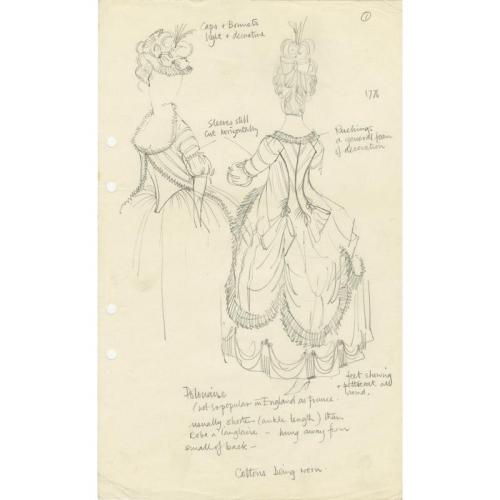 ①
Caps + Bonnets
light + decorative
1776
Sleeves still
cut horizontally
Ruchings
a general form
of decoration
feet showing
+ petticoat all
round.
Polonaise
(not so popular in England as France.
usually shorter (ankle length) than
Robe a l'anglaise – hung away from
small of back –
Cottons being worn